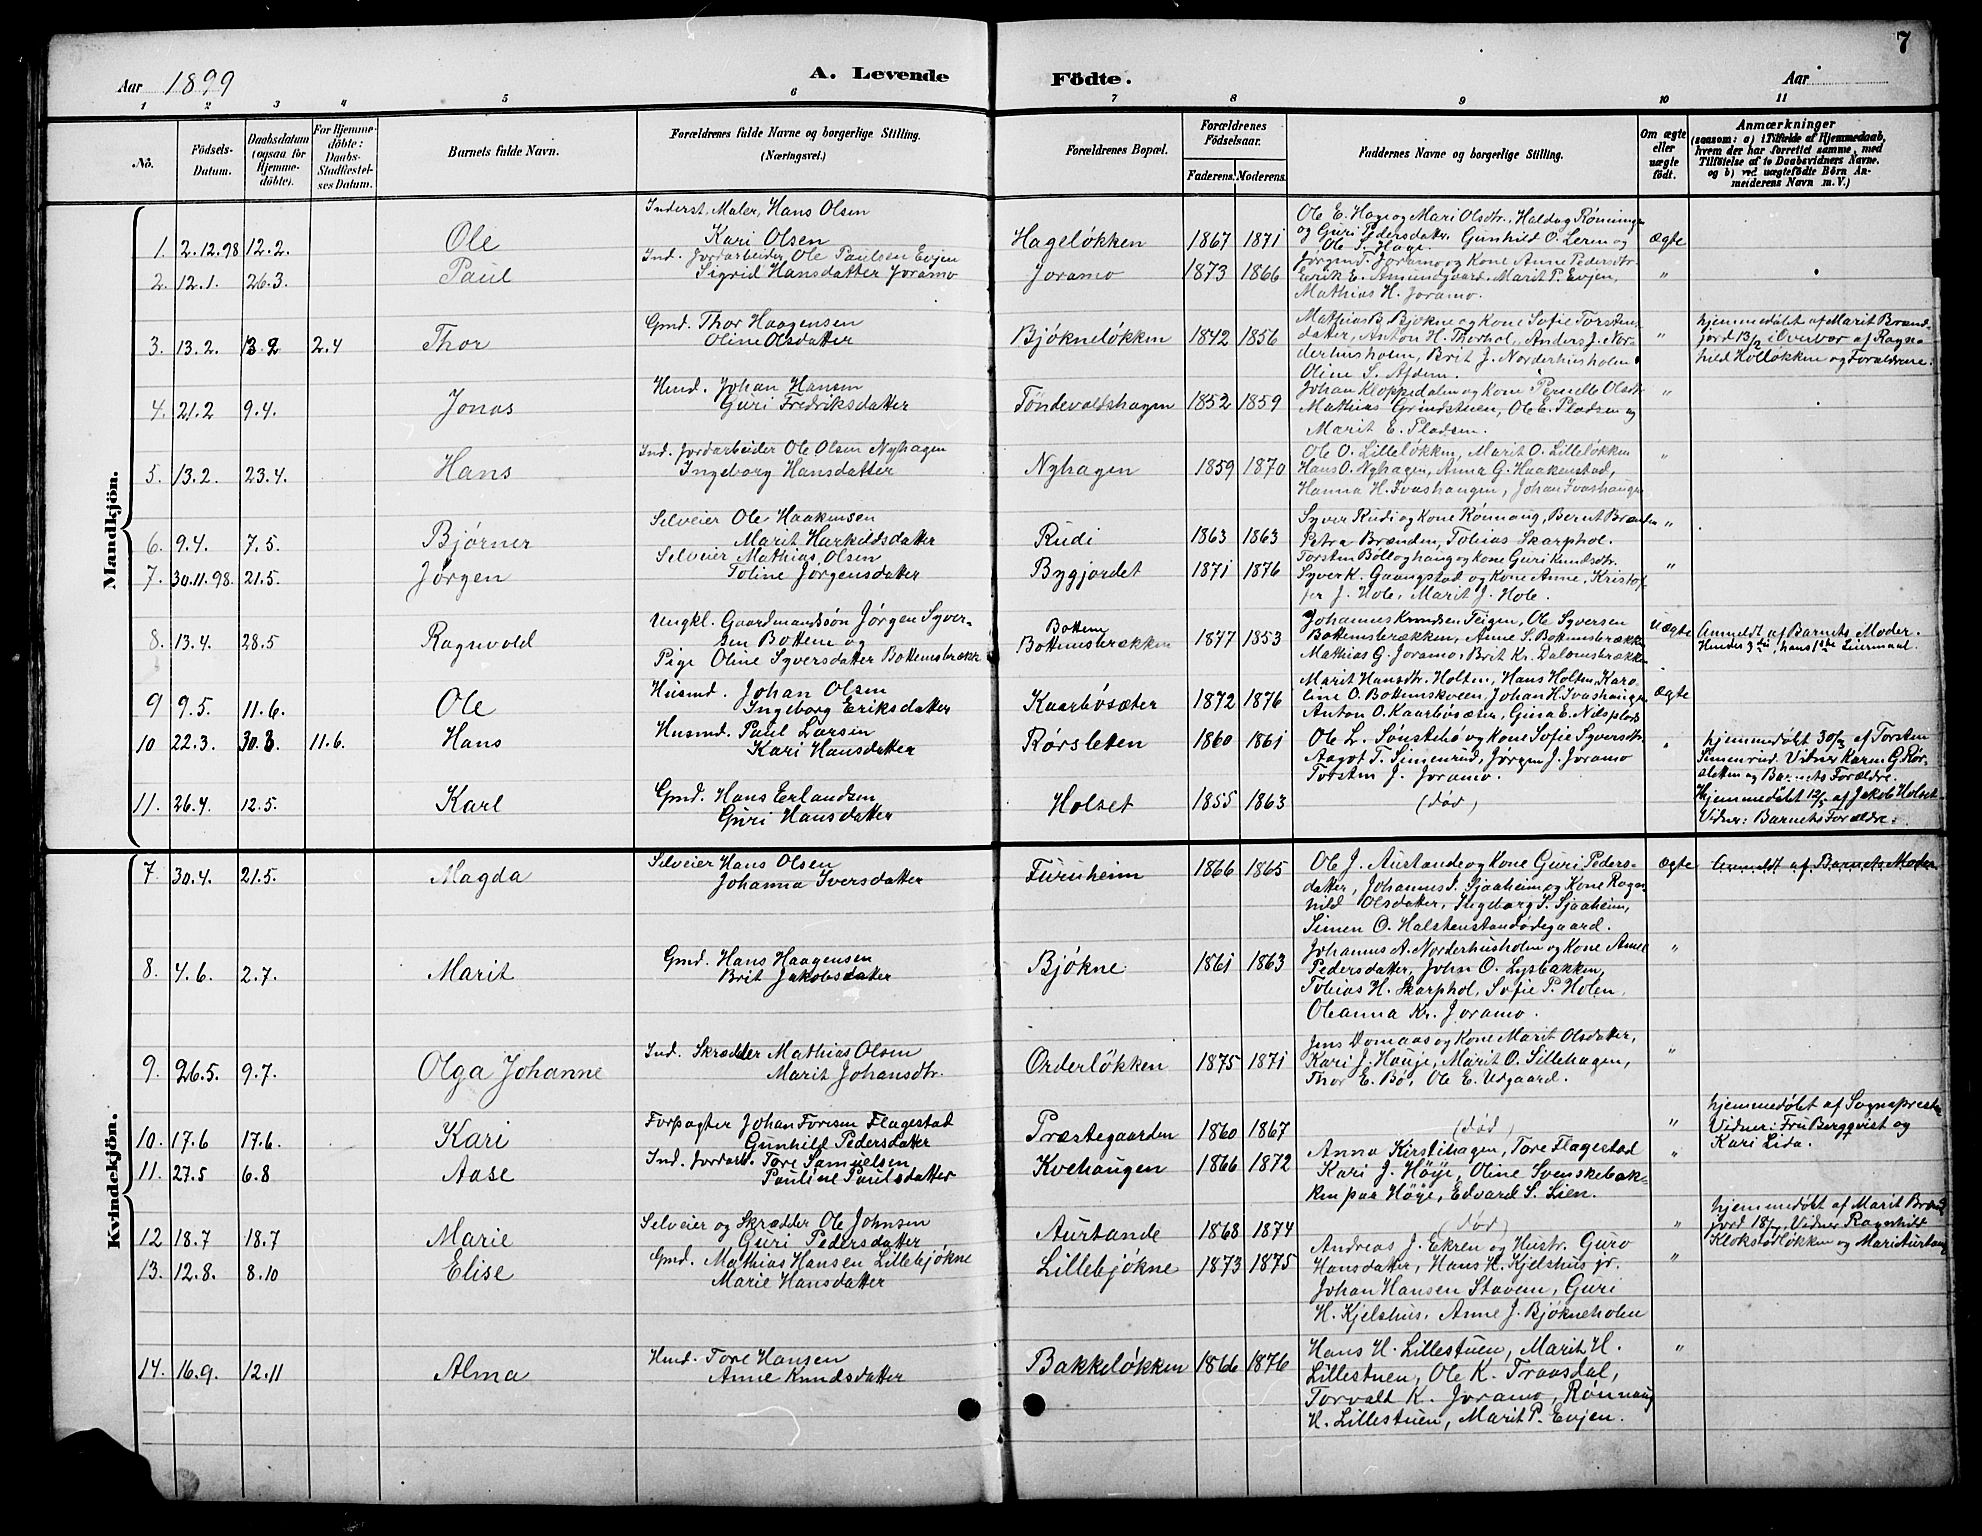 7
Aar 1899
A. Levende Födte.
Aar
1 2 3 4 5 6 7 8 9 10 11
No.
Födsels-Datum.
Daabsdatum (ogsaa for Hjemmedöbte).
For Hjemmedöbte: Daabs-Stadfæstelses Datum.
Barnets fulde Navn.
Forældrenes fulde Navne og borgerlige Stilling. (Næringsvei.)
Forældrenes Bopæl.
Forældrenes Födselsaar.
Faderens. Moderens.
Faddernes Navne og borgerlige Stilling.
Om ægte eller uægte födt.
Anmærkninger
(saasom: a) i Tilfælde af Hjemmedaab, hvem der har forrettet samme, med Tilföielse af to Daabsvidners Navne, og b) ved uægtefödte Börn Anmelderens Navn m. V.)
Mandkjön.
1. 2.12.98 12.2. Ole
Inderst, Maler, Hans Olsen
Kari Olsen
Hageløkken 1867 1871
Ole E. Hage og Mari Olsdtr. Haldog Rønninge
og Guri Pedersdatr. Gunhild O. Leren og
Ole S. Hage.
ægte
2. 12.1. 26.3. Paul
Ind. Jordarbeider Ole Paulsen Evjen
Sigrid Hansdatter Joramo
Joramo 1873 1866
Jørgen T. Joramo og Kone Anne Pedersdtr.
Eirik E. Amundgaard, Marit P. Evjen,
Mathias H. Joramo.
"
3. 13.2. 13.2 2.4 Thor
Gmd. Thor Haagensen
Oline Olsdatter
Bjøkneløkken 1842 1856
Mathias B. Bjøkne og Kone Sofie Torstens
datter, Anton H. Thorhol, Anders J. Nor-
derhusholm, Brit J. Norderhusholm
Oline S. Afdem.
"
hjemmedøbt af Marit Brænd-
jord 13/2 i Overvær af Ragn-
hild Holløkken og Forældrene.
4. 21.2 9.4. Jonas
Hmd. Johan Hansen
Guri Fredriksdatter
Töndevoldshagen 1852 1859
Johan Kloppedalen og Kone Pernille Olsdtr
Mathias Grindstuen, Ole E. Pladsen og
Marit E. Pladsen.
"
5. 13.2. 23.4. Hans
Ind. Jordarbeider Ole Olsen Nyhagen
Ingeborg Hansdatter
Nyhagen 1859 1870
Ole O. Lilleløkken, Marit O. Lilleløkken
Hans O. Nyhagen, Anna G. Haakenstad,
Hanna H. Ivashaugen, Johan Ivashaugen
"
6. 9.4. 7.5. Bjørner
Selveier Ole Haakensen
Marit Harkildsdatter
Rudi 1863 1863
Syver Rudi og Kone Rønnaug, Bernt Brænden
Petra Brænden, Tobias Skarphol.
"
7. 30.11.98. 21.5. Jørgen
Selveier Mathias Olsen
Toline Jørgensdatter
Bygjordet 1871 1876
Torsten Bølloghaug og Kone Guri Knudsdtr.
Syver K. Gaangstad og Kone Anne, Kristof-
fer J. Hole, Marit J. Hole.
"
8. 13.4. 28.5 Ragnvold
Ungkl. Gaardmandssøn Jørgen Syver-
sen Bottem og
Pige Oline Syversdatter Bottemsbrække
Bottem
Bottemsbrækken 1877 1853
Johannes Knudsen Teigen, Ole Syversen
Bottemsbrækken, Anne S. Bottemsbrække
Mathias G. Joramo, Brit Kr. Dalomsbrækken
Uægte
Anmeldt af Barnets Moder.
Hendes 3die, hans 1ste Leiermaal.
9 9.5. 11.6. Ole
Husmd. Johan Olsen
Ingeborg Eriksdatter
Kaarbösæter 1872 1876
Marit Hansdtr. Holten, Hans Holten, Karo-
line O. Bottemskveen, Johan H. Ivashaugen
Anton O. Kaarbösæter, Gina E. Nilsplads
ægte
10 22.3. 30.3. 11.6. Hans
Husmd. Paul Larsen
Kari Hansdatter
Rørsletten 1860 1861
Ole L. Sønstebø og Kone Sofie Syversdtr.
Aagot T. Simenrud, Jørgen J. Joramo
Torsten J. Joramo.
"
hjemmedøbt 30/3 af Torsten
Simenrud. Vidner Karen G. Rør-
sletten og Barnets Forældre.
11. 26.4. 12.5. Karl
Gmd. Hans Erlandsen
Guri Hansdatter
Holset 1855 1863
(død)
Hjemmedøbt 12/5 af Jakob Holset.
Vidner: Barnets Forældre.
Kvindekjön.
7 30.4. 21.5. Magda
Selveier Hans Olsen
Johanna Iversdatter
Furuheim 1866 1865
Ole J. Austande og Kone Guri Peders-
datter, Johannes I. Sjaaheim og Kone Ragn-
hild Olsdatter, Ingeborg I. Sjaaheim,
Simen O. Halstenstandødegaard.
ægte
Anmeldt af Barnets Moder
8. 4.6. 2.7. Marit
Gmd. Hans Haagensen
Brit Jakobsdatter
Bjøkne 1861 1863
Johannes A. Norderhusholm og Kone Anne
Pedersdatter, John O. Lysbakken,
Tobias H. Skarphol, Sofie P. Holen,
Oleanna Kr. Joramo.
"
9. 26.5. 9.7. Olga Johanne
Ind. Skrædder Mathias Olsen
Marit Johansdtr.
Orderløkken 1875 1871
Jens Domaas og Kone Marit Olsdatter,
Kari J. Hauje, Marit O. Lillehagen,
Thor E. Bø, Ole E. Udgaard.
"
10. 17.6 17.6. Kari
Forpagter Johan Toresen Flagestad
Gunhild Pedersdatter
Præstegaarden 1860 1867
(død)
"
hjemmedøbt af Sognepresten
Vidner: Fru Bergqvist og
Kari Lida.
11. 27.5 6.8 Aase
Ind. Jordarb. Tore Samuelsen
Pauline Paulsdatter
Kvehaugen 1866 1872
Anna Kirstihagen, Tore Flagestad
Kari J. Höye, Oline Svenskebak-
ken paa Höye, Edvard S. Lien.
"
12 18.7 18.7 Marie
Selveier og Skrædder Ole Johnsen
Guri Pedersdatter
Aurtande 1868 1874
(død)
"
hjemmedøbt af Marit Brænd
jord 18/7, Vidner Ragnhild
Klokstadløkken og Mari Aurtang
13. 12.8. 8.10 Elise
Gmd. Mathias Hansen Lillebjøkne
Marie Hansdatter
Lillebjøkne 1873 1875
Andreas J. Ekren og Hustr. Guro
Hansdatter, Hans H. Kjelshus jr.
Johan Hansen Stavem, Guri
H. Kjelshus, Anne J. Bjøkneholen
"
14. 16.9. 12.11 Alma
Hmd. Tore Hansen
Anne Knudsdatter
Bakkeløkken 1866 1876
Hans H. Lillestuen, Marit H.
Lillestuen, Ole K. Traasdal,
Torvald K. Joramo, Rønnaug
H. Lillestuen, Marit P. Evjen.
"